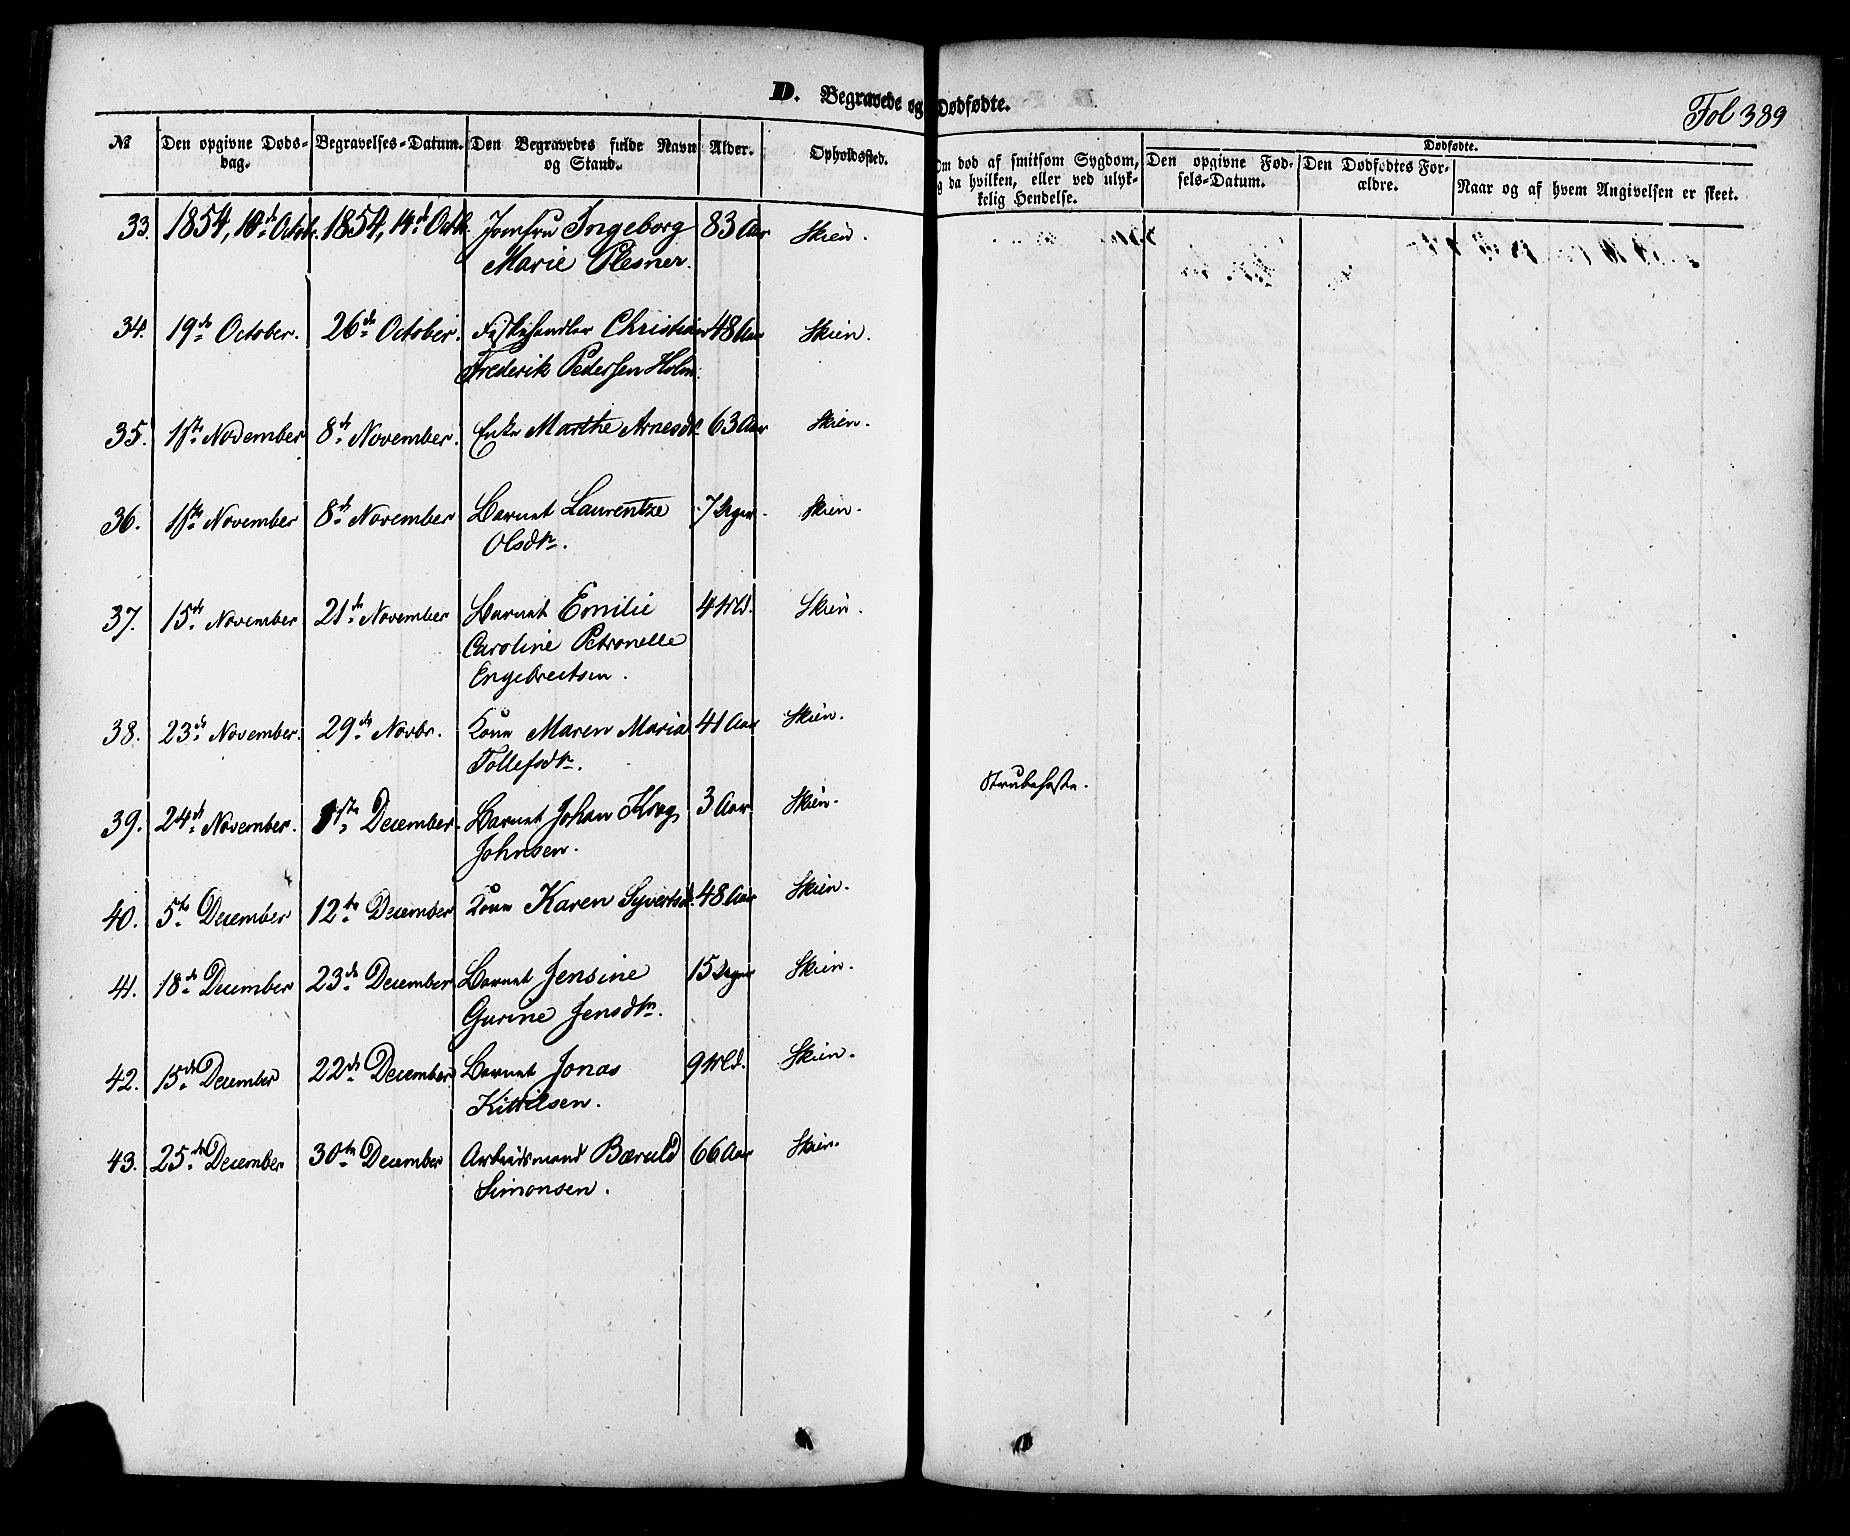 D. Begravede og Dødfødte.
Fol 389
№
Den opgivne Døds-
dag.
Begravelses-Datum.
Den Begravedes fulde Navn
og Stand.
Alder.
Opholdssted.
Om død af smitsom Sygdom,
og da hvilken, eller ved ulyk-
kelig Hendelse.
Dødfødte.
Den opgivne Fød-
sels-Datum.
Den Dødfødtes For-
ældre.
Naar og af hvem Angivelsen er skeet.
33. 1854, 10de Octob. 1854, 14de Octb. Jomfru Ingeborg 83 Aar Skien.
Marie Plesner.
34. 19de October. 26de October. Fiskehandler Christian 48 Aar Skien.
Frederik Pedersen Holm.
35. 1ste November 8de November. Enke Marthe Arnesdtr 63 Aar Skien.
36. 1ste November 8de November Barnet Laurentze 7 Dger. Skien.
Olsdtr.
37. 15de November 21de November Barnet Emilie 4 Md. Skien.
Caroline Petronelle
Engebretsen.
38. 23de November. 29de Novbr. Kone Maren Maria 41 Aar Skien.
Tollefsdtr.
39. 24de November. 1ste December. Barnet Johan Krog 3 Aar. Skien. Strubehoste.
Johnsen.
40. 5te December 12te December Kone Karen Syvertsd. 48 Aar Skien.
41. 18de December 23de December Barnet Jensine 15 Dager Skien.
Gurine Jensdtr.
42. 15de December 22de December Barnet Jonas 9 Md. Skien.
Kittilsen.
43. 25de December 30te December Arbeidsmand Bæruld 66 Aar Skien.
Simonsen.